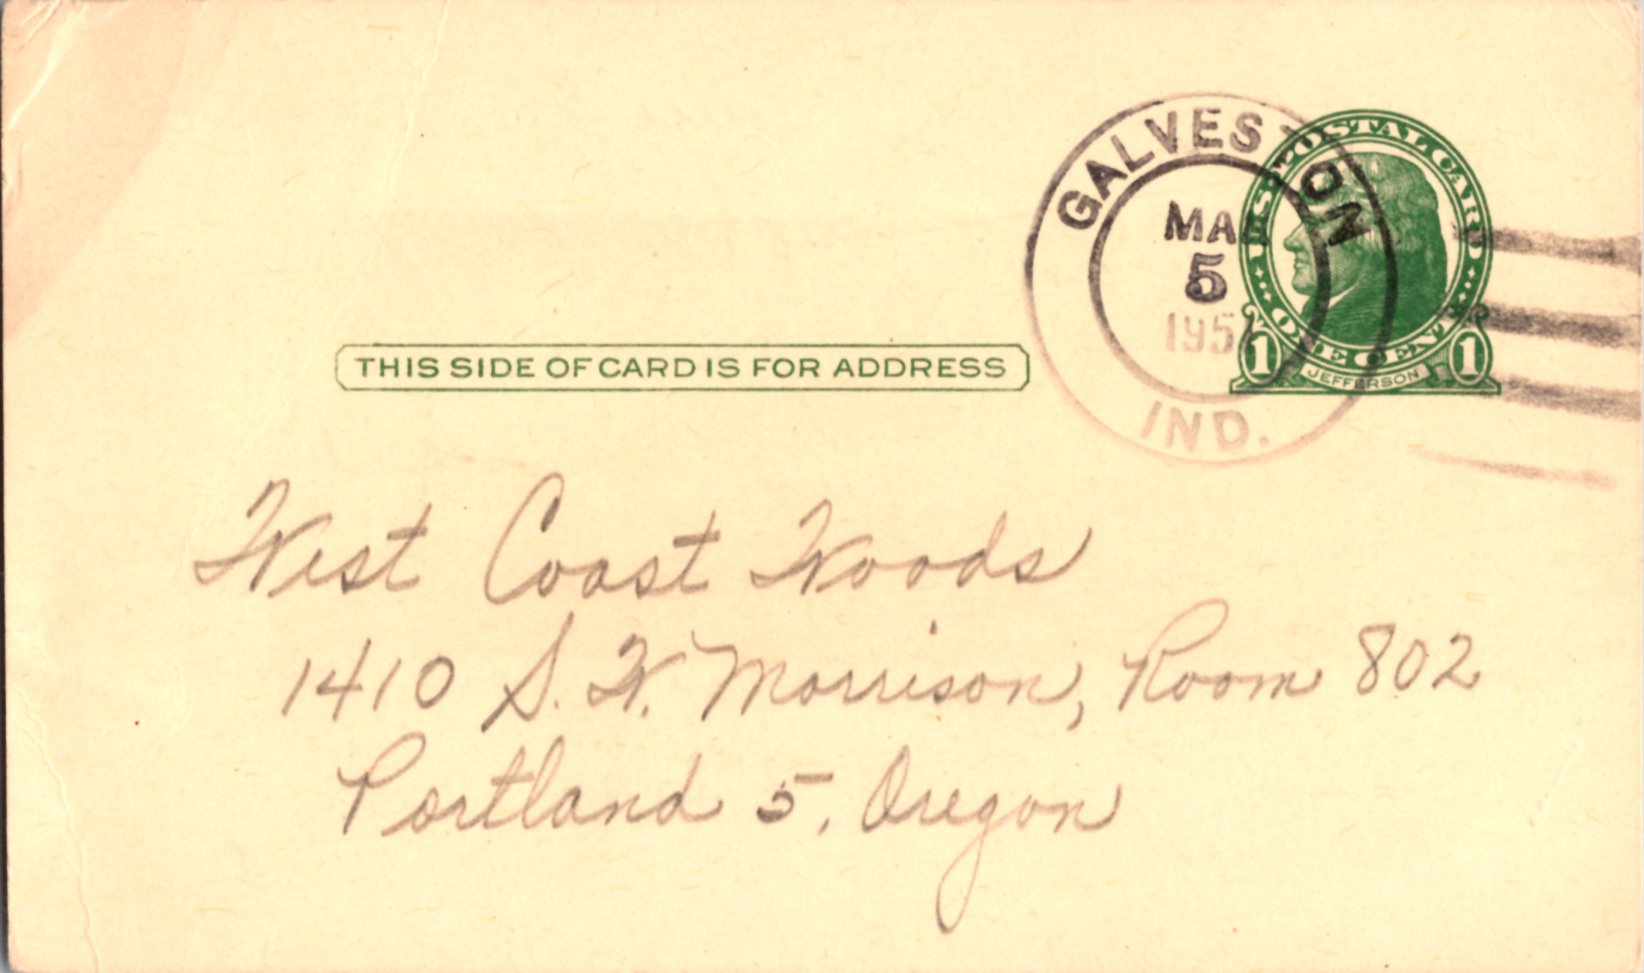 GALVESTON
MAR
5
195
IND.
U.S. POSTAL CARD
1 ONE CENT 1
JEFFERSON
THIS SIDE OF CARD IS FOR ADDRESS
West Coast Woods
1410 S.W. Morrison, Room 802
Portland 5, Oregon